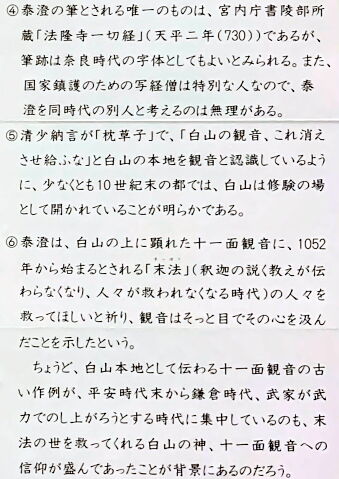 ④泰澄の筆とされる唯一のものは、宮内庁書陵部所
蔵「法隆寺一切経」(天平二年(730))であるが、
筆跡は奈良時代の字体としてもよいとみられる。また、
国家鎮護のための写経僧は特別な人なので、泰
澄を同時代の別人と考えるのは無理がある。
⑤清少納言が「枕草子」で、「白山の観音、これ消え
させ給ふな」と白山の本地を観音と認識しているよう
に、少なくとも10世紀末の都では、白山は修験の場
として開かれていることが明らかである。
⑥泰澄は、白山の上に顕れた十一面観音に、1052
年から始まるとされる「末法」(釈迦の説く教えが伝
わらなくなり、人々が救われなくなる時代)の人々を
救ってほしいと祈り、観音はそっと目でその心を汲ん
だことを示したという。
ちょうど、白山本地として伝わる十一面観音の古
い作例が、平安時代末から鎌倉時代、武家が武
力でのし上がろうとする時代に集中しているのも、末
法の世を救ってくれる白山の神、十一面観音への
信仰が盛んであったことが背景にあるのだろう。